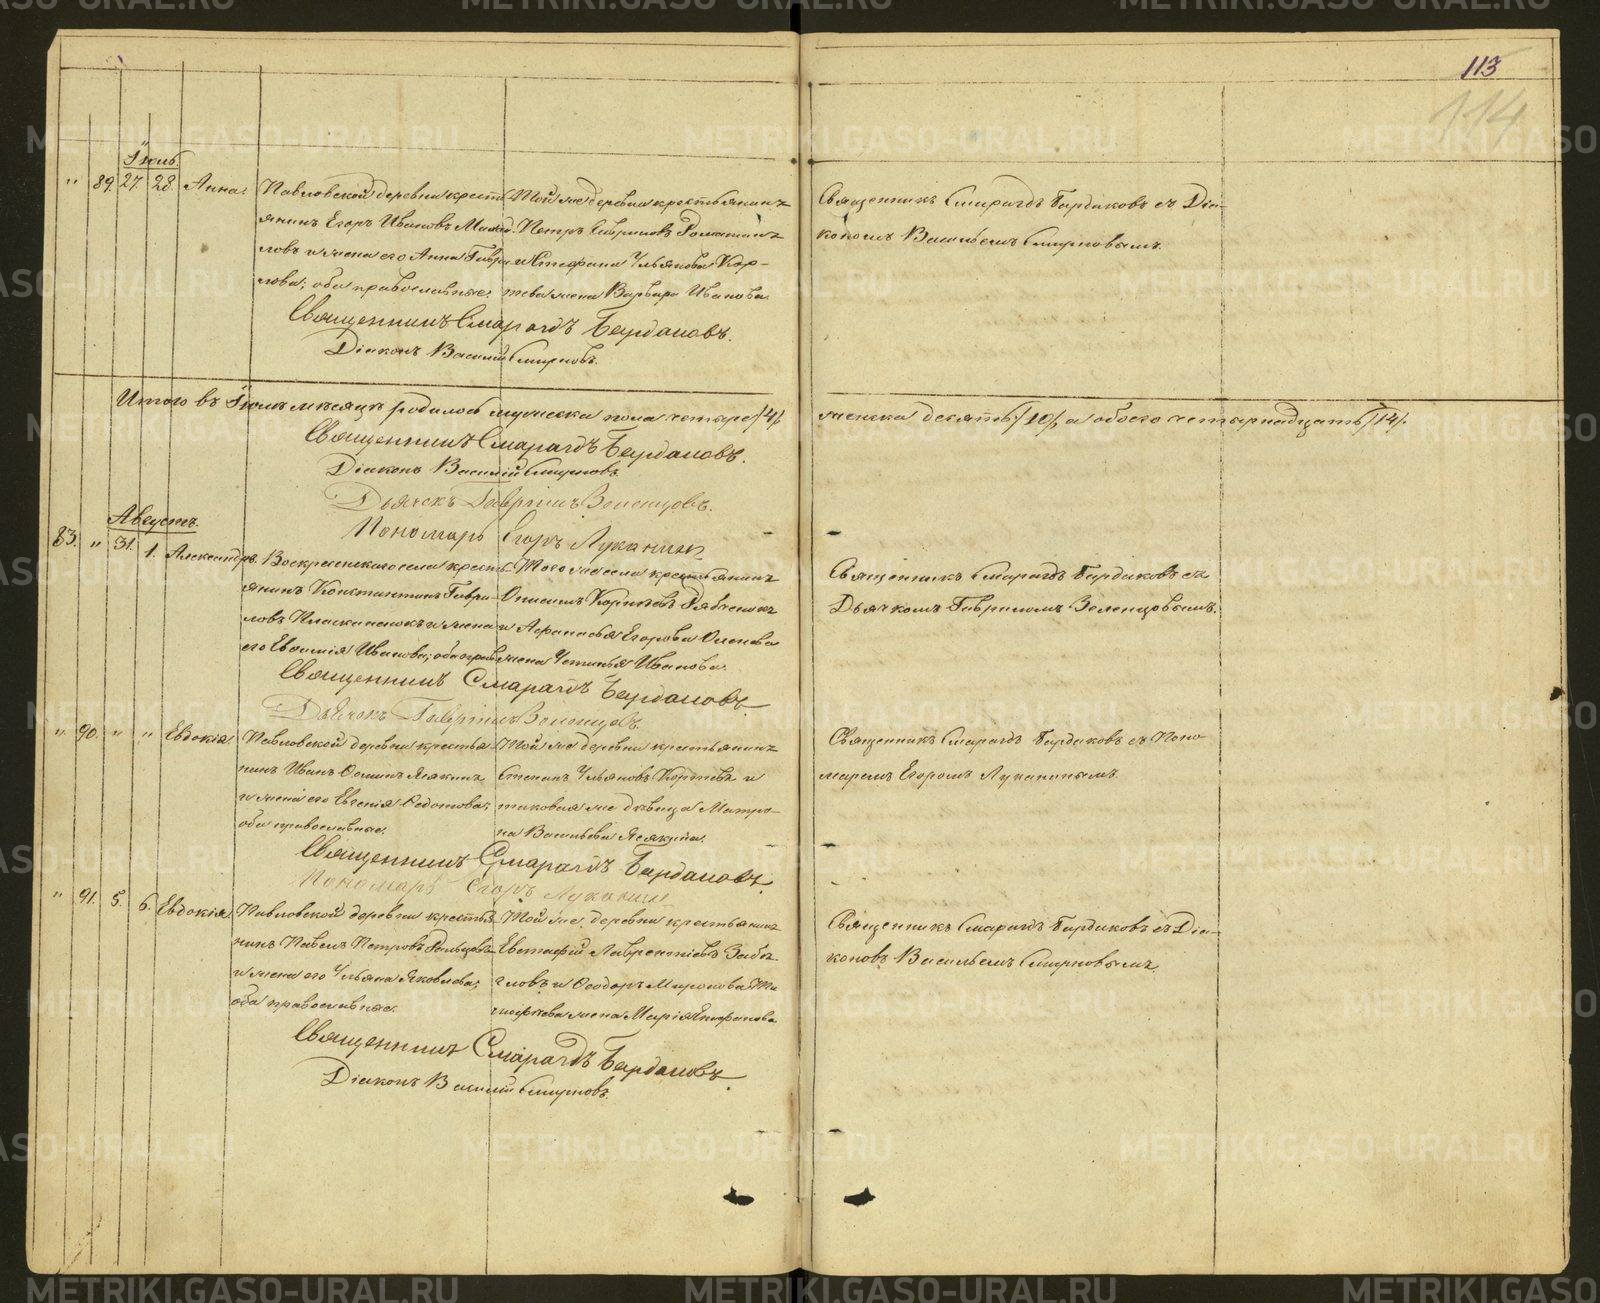 113
114
Іюль.
" 89. 27. 28. Анна.
Павловской деревни кресть-
янинъ Егоръ Ивановъ
ловъ и жена его Анна Гаври-
лова; оба православные.
Той же деревни крестьянинъ
Петръ Гавриловъ Романовъ
и Стефана Ульянова Кор-
тева жена Варвара Иванова.
Священникъ Смарагдъ Бардаковъ съ Діа-
кономъ Васильемъ Смирновымъ.
Священникъ Смарагдъ Бардаковъ.
Діаконъ Василій Смирновъ.
Итого въ Іюлѣ мѣсяцѣ родилось мужеска пола четыре /4/
женска десять /10/, а обоего четырнадцать /14/.
Священникъ Смарагдъ Бардаковъ.
Діаконъ Василій Смирновъ.
Дьячекъ Гавріилъ Зеленцовъ.
Пономарь Егоръ Луканинъ
Августъ.
83. " 31. 1. Александръ.
Воскресенскаго села кресть-
янинъ Константинъ Гаври-
ловъ и жена
его Евѳимія Иванова; оба прав.
Того же села крестьянинъ
и Афанасья Егорова
жена Устинья Иванова.
Священникъ Смарагдъ Бардаковъ съ
Дьячкомъ Гавриломъ Зеленцовымъ.
Священникъ Смарагдъ Бардаковъ
Дьячокъ Гавріилъ Зеленцовъ.
" 90. " " Евдокія
Павловской деревни кресть-
нинъ Иванъ Осиповъ Ясякинъ
и жена его Евгенія Ѳедотова;
оба православные.
Той же деревни крестьянинъ
Степанъ Ульяновъ Кортевъ и
таковая же дѣвица Матро-
на Васильева Ясякина.
Священникъ Смарагдъ Бардаковъ съ Поно-
маремъ Егоромъ Луканинымъ.
Священникъ Смарагдъ Бардаковъ.
Пономарь Егоръ Луканинъ
" 91. 5. 6. Евдокія
Павловской деревни кресть-
нинъ Павелъ Петровъ
и жена его Ульяна Яковлева;
оба православные.
Той же деревни крестьянинъ
Евстафій Лаврентіевъ
и Ѳеодора Миронова
жена Марія Епифанова
Священникъ Смарагдъ Бардаковъ съ Діа-
кономъ Васильемъ Смирновымъ
Священникъ Смарагдъ Бардаковъ.
Діаконъ Василій Смирновъ.
METRIKI.GASO-URAL.RU